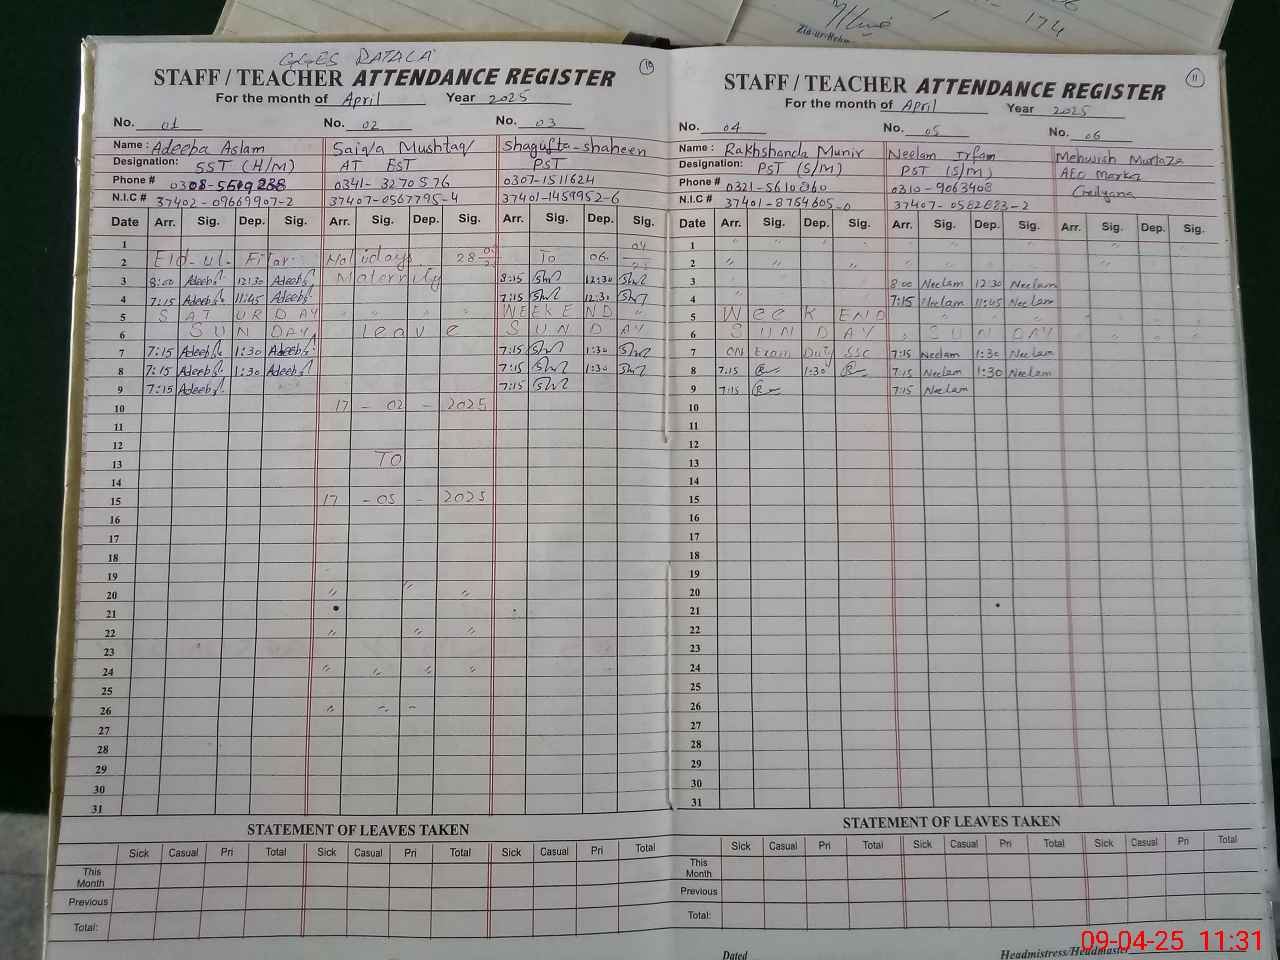 174
Zia-ur-Rehm
GGES RATALA
10
STAFF / TEACHER ATTENDANCE REGISTER
For the month of April Year 2025
No. 01 No. 02 No. 03
Name : Adeeba Aslam Saiqa Mushtaq Shagufta-shaheen
Designation: SST (H/M) AT EST PST
Phone # 0308-5509238 0341-3270576 0307-1511624
N.I.C # 37402-09669907-2 37407-0567795-4 37401-1459952-6
Date Arr. Sig. Dep. Sig. Arr. Sig. Dep. Sig. Arr. Sig. Dep. Sig.
1
2 Eid-ul-Fitar Holidays 28 To 06 04
3 8:00 Adeeba 12:30 Adeeba Maternity 8:15 12:30
4 7:15 Adeeba 11:45 Adeeba 7:15 12:30
5 SATURDAY WEEKEND
6 SUNDAY Leave SUNDAY
7 7:15 Adeeba 1:30 Adeeba 7:15 1:30
8 7:15 Adeeba 1:30 Adeeba 7:15 1:30
9 7:15 Adeeba 7:15
10 17 - 02 - 2025
11
12
13 TO
14
15 17 - 05 - 2025
16
17
18
19
20 " " "
21
22 " " "
23
24 " " " "
25
26 " " "
27
28
29
30
31
STATEMENT OF LEAVES TAKEN
Sick Casual Pri Total Sick Casual Pri Total Sick Casual Pri Total
This Month
Previous
Total:
11
STAFF / TEACHER ATTENDANCE REGISTER
For the month of April Year 2025
No. 04 No. 05 No. 06
Name : Rakhshanda Munir Neelam Irfam Mehwish Murtaza
Designation: PST (S/M) PST (S/M) AEO Markaz
Phone # 0321-5610860 0310-9063408
N.I.C # 37401-8764605-0 37407-0582683-2
Date Arr. Sig. Dep. Sig. Arr. Sig. Dep. Sig. Arr. Sig. Dep. Sig.
1 " " " "
2 " " " "
3 8:00 Neelam 12:30 Neelam
4 " 7:15 Neelam 11:45 Neelam
5 WeeK END
6 SUNDAY SUNDAY
7 ON Exam Duty SSC 7:15 Neelam 1:30 Neelam
8 7:15 1:30 7:15 Neelam 1:30 Neelam
9 7:15 7:15 Neelam
10
11
12
13
14
15
16
17
18
19
20
21
22
23
24
25
26
27
28
29
30
31
STATEMENT OF LEAVES TAKEN
Sick Casual Pri Total Sick Casual Pri Total Sick Casual Pri Total
This Month
Previous
Total:
Dated Headmistress/Headmaster
09-04-25 11:31